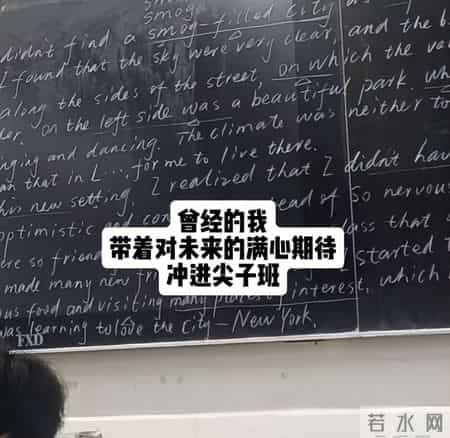 smog
didn't find a smog-filled city
I found that the sky were very clear, and the b
along the sides of the street, on which the ve
on the left side was a beautiful park. wh
nging and dancing. The climate was neither to
an that in L....for me to live there.
his new setting. I realized that I didn't hav
optimistic and con ead of so nervous
ere so frien lass that
曾经的我
带着对未来的满心期待
冲进尖子班
made many new fr I started t
ous food and visiting many places interest, which
was learning to love the City - New York.
FXD
若水网